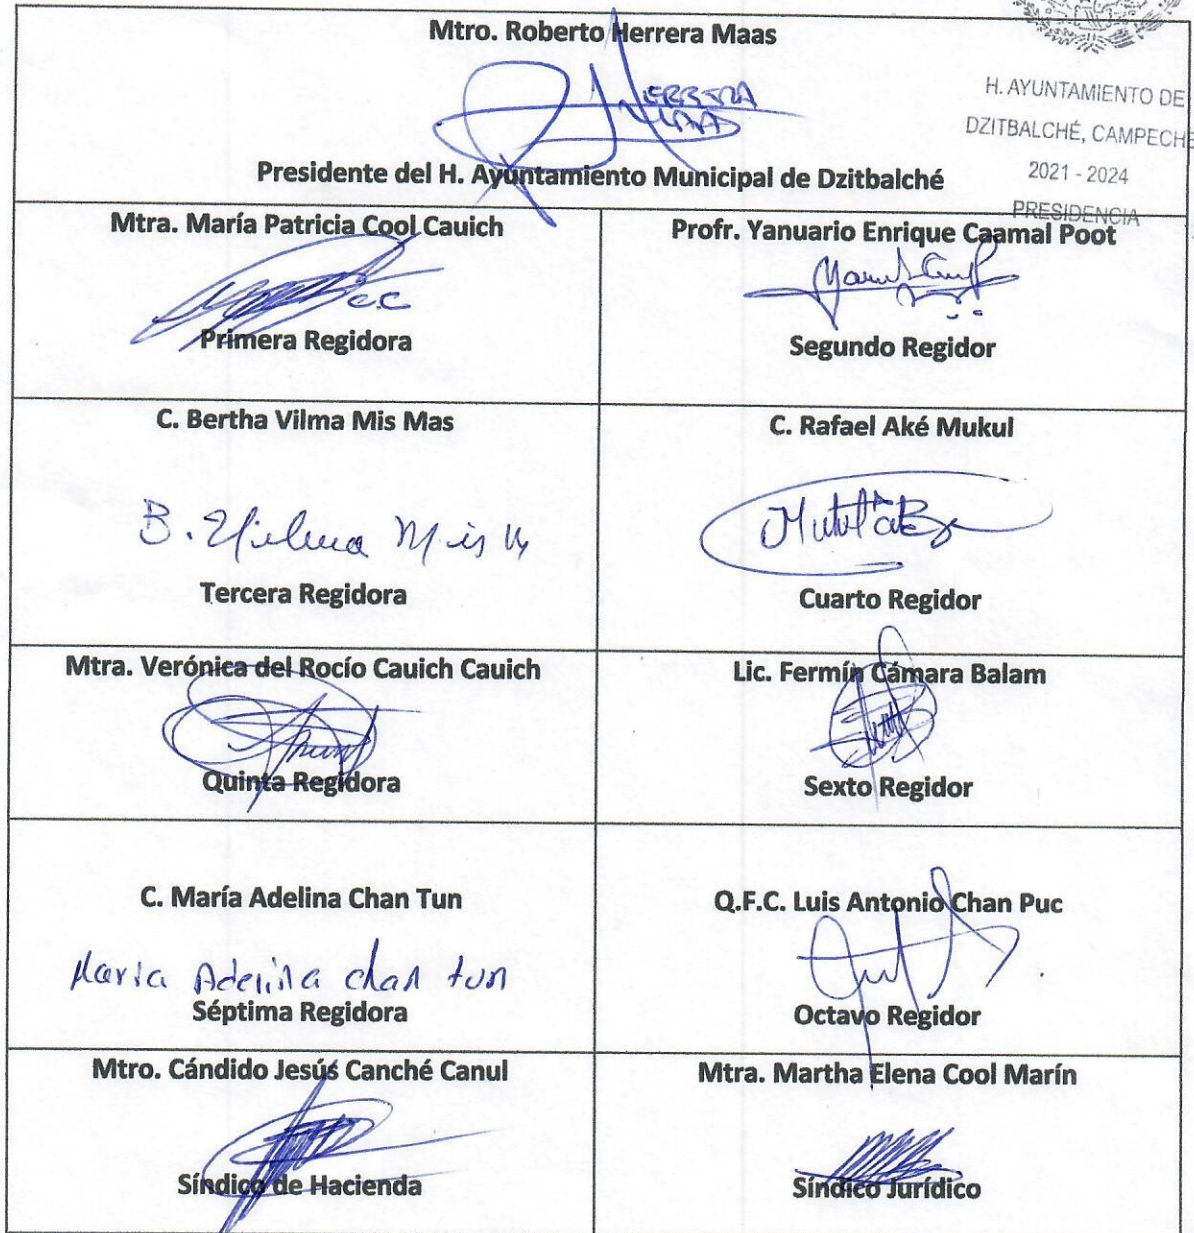 Mtro. Roberto Herrera Maas
HERRERA
MAAS
Presidente del H. Ayuntamiento Municipal de Dzitbalché
H. AYUNTAMIENTO DE
DZITBALCHÉ, CAMPECHE
2021 - 2024
PRESIDENCIA
Mtra. María Patricia Cool Cauich
c.c
Primera Regidora
Profr. Yanuario Enrique Caamal Poot
Segundo Regidor
C. Bertha Vilma Mis Mas
B. Vilma Mis M
Tercera Regidora
C. Rafael Aké Mukul
Cuarto Regidor
Mtra. Verónica del Rocío Cauich Cauich
Quinta Regidora
Lic. Fermín Cámara Balam
Sexto Regidor
C. María Adelina Chan Tun
Maria Adelina chan tun
Séptima Regidora
Q.F.C. Luis Antonio Chan Puc
Octavo Regidor
Mtro. Cándido Jesús Canché Canul
Síndico de Hacienda
Mtra. Martha Elena Cool Marín
Síndico Jurídico